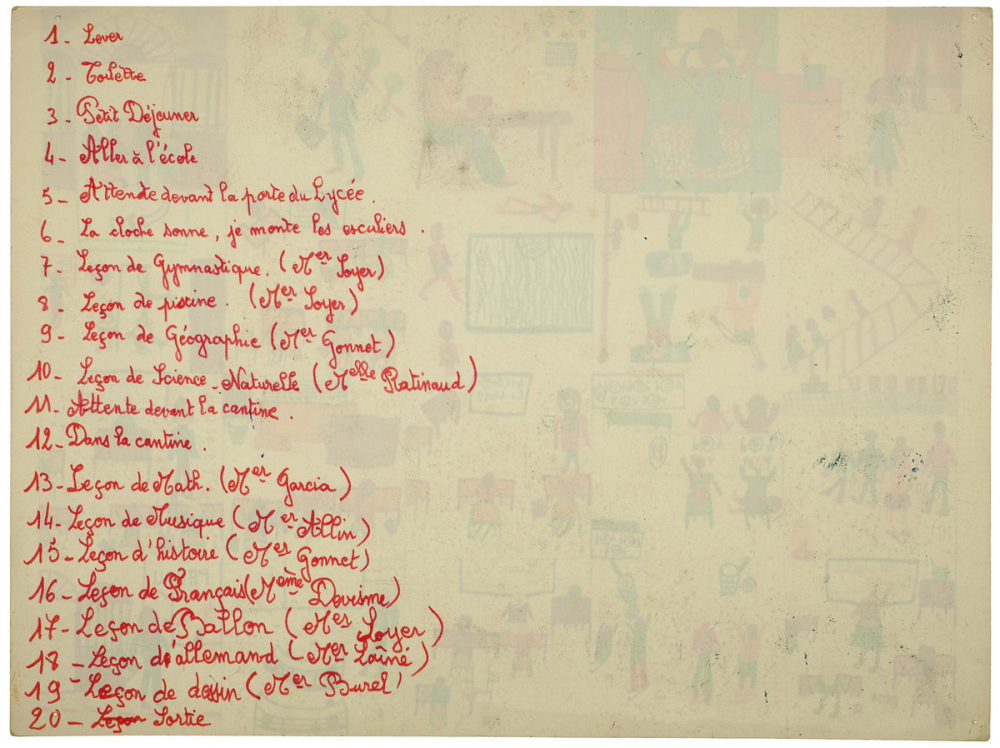 1 - Lever
2 - Toilette
3 - Petit Déjeuner
4 - Aller à l'école
5 - Attente devant la porte du Lycée.
6 - La cloche sonne, je monte les esculiers.
7 - Leçon de Gymnastique. (Mer Soyer)
8 - Leçon de piscine. (Mer Soyer)
9 - Leçon de Géographie (Mer Gonnet)
10 - Leçon de Science-Naturelle (Melle Platinaud)
11 - Attente devant la cantine.
12 - Dans la cantine.
13 - Leçon de Math. (Mer Garcia)
14 - Leçon de Musique (Mer Allin)
15 - Leçon d'histoire (Mer Gonnet)
16 - Leçon de Français (Meme Devisme)
17 - Leçon de Ballon (Mer Soyer)
18 - Leçon d'allemand (Mer Laîné)
19 - Leçon de dessin (Mer Burel)
20 - Leçon Sortie